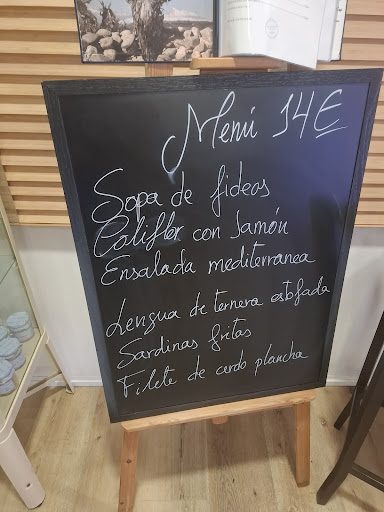 Menú 14€
Sopa de fideos
Califlor con Jamón
Ensalada mediterranea
Lengua de ternera estofada
Sardinas fritas
Filete de cerdo plancha